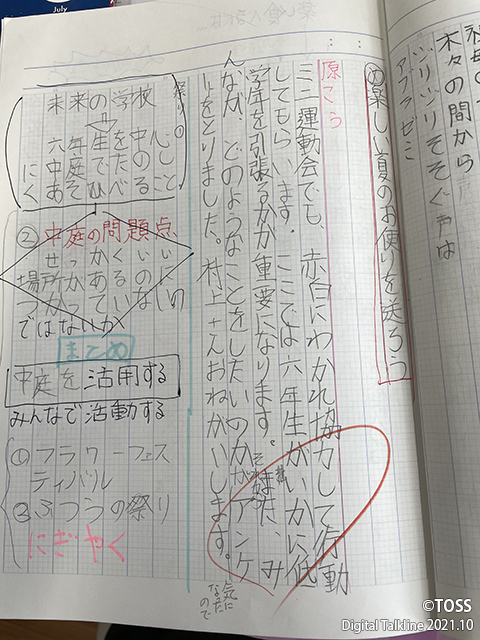 July
祖母の
木々の間から
ジリジリそそぐ声は
アブラゼミ
⑦楽しい夏のお便りを送ろう
原こう
ミニ運動会でも、赤白にわかれ協力して行動
してもらいます。ここでは六年生がいかに低
学年を引張るかが重要になります。また、み
んなが、どのようなことをしたいのかアンケ
ートをとりました。村上さんおねがいします。
気に
なった
ので
祭り①
未来の学校
六年生を中心
中庭でたのし
あそひべること
にく
②中庭の問題点
せっかくいい
場所があるのに
つかっていない
ではないか
まとめ
中庭を活用する
みんなで活動する
①フラワーフェス
ティバル
②ふつうの祭り
にぎやく
©TOSS
Digital Talkline 2021.10